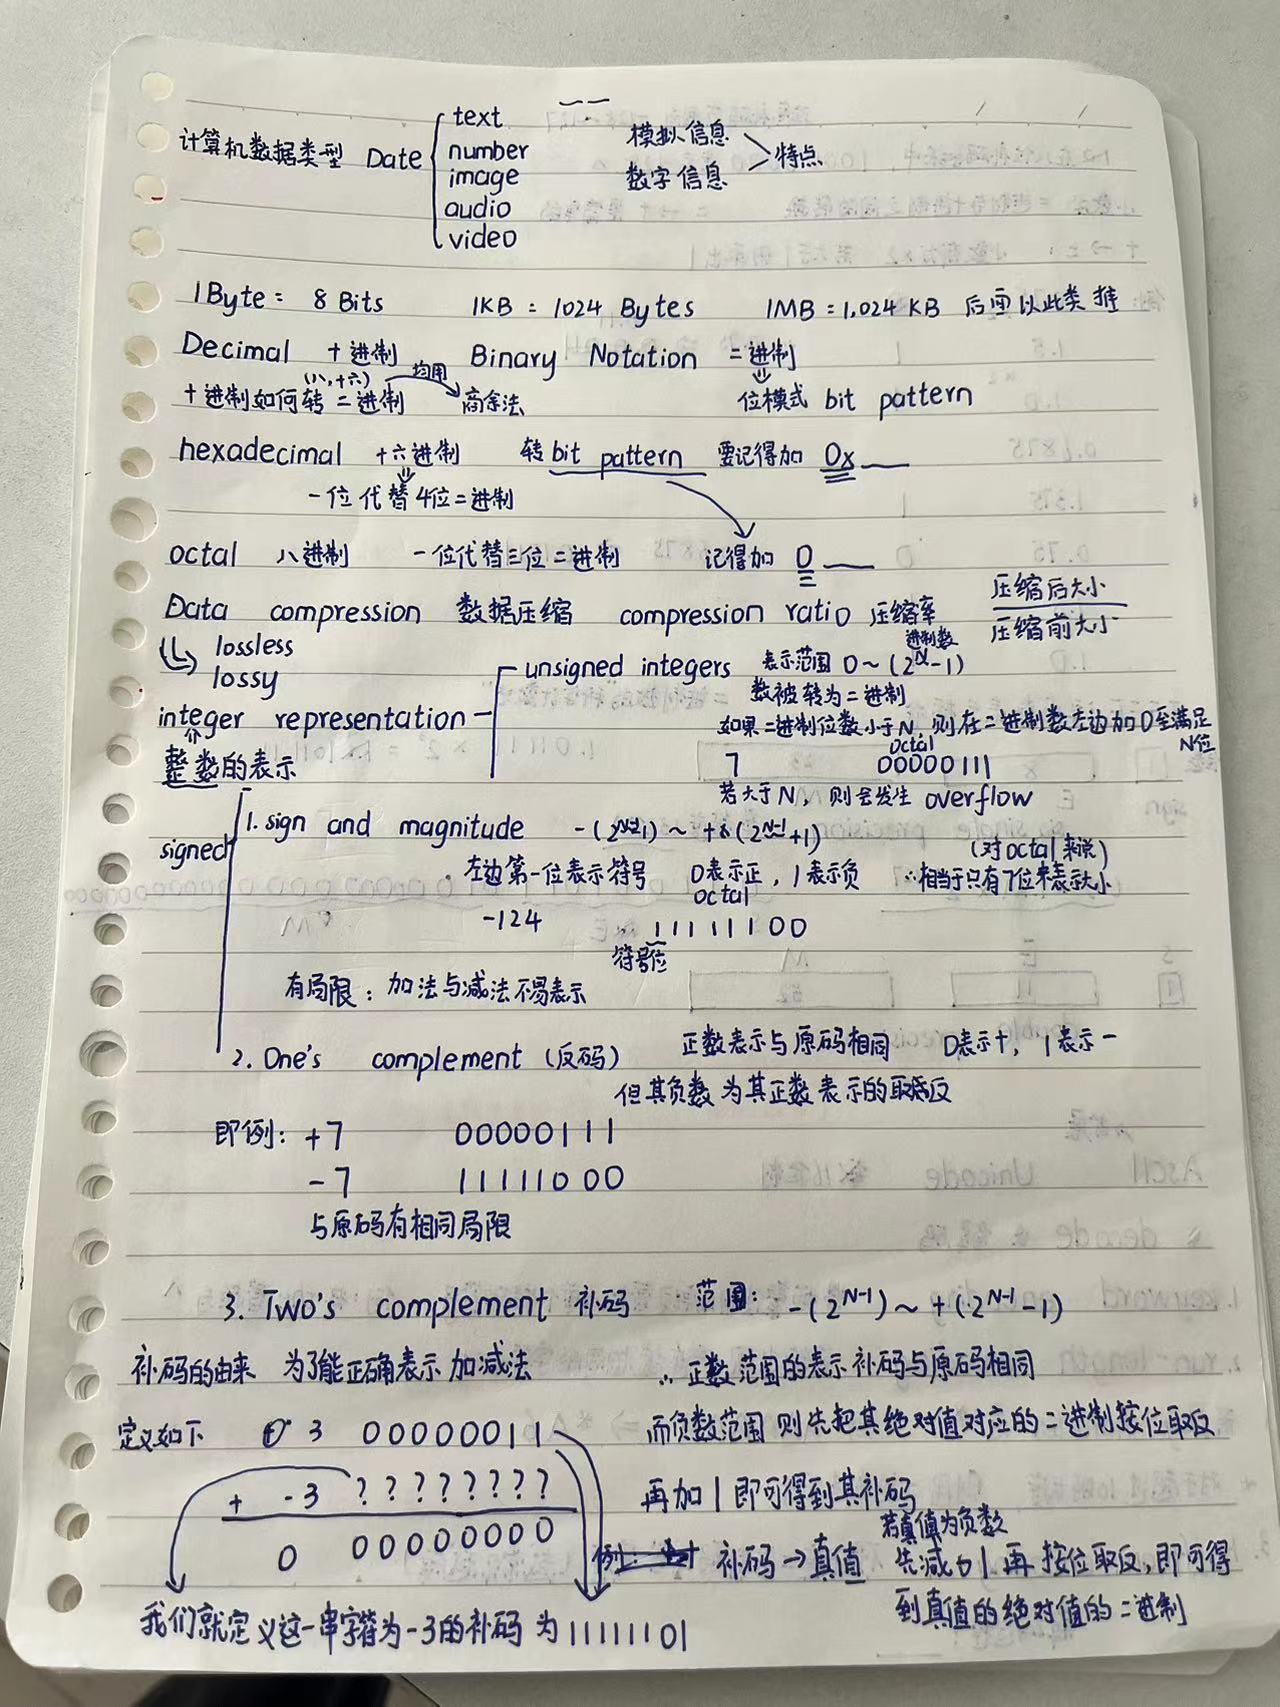 计算机数据类型 Date
text
number
image
audio
video
模拟信息
数字信息
特点
1Byte = 8 Bits 1KB = 1024 Bytes 1MB = 1,024 KB 后面以此类推
Decimal 十进制 Binary Notation 二进制
(八,十六) 均用
十进制如何转二进制 商余法 位模式 bit pattern
hexadecimal 十六进制 转 bit pattern 要记得加 0x
一位代替4位二进制
octal 八进制 一位代替三位二进制 记得加 0
Data compression 数据压缩 compression ratio 压缩率 压缩后大小
压缩前大小
lossless
lossy
进制数
unsigned integers 表示范围 0 ~ (2^N - 1)
数被转为二进制
integer representation
整数的表示
如果二进制位数小于N, 则在二进制数左边加0至满足
N位
octal
7 00000111
若大于N, 则会发生 overflow
signed
1. sign and magnitude
(对octal来说)
左边第一位表示符号 0表示正, 1表示负 ∴相当于只有7位来表示大小
octal
-124 11111100
符号位
有局限: 加法与减法不易表示
2. One's complement (反码) 正数表示与原码相同 0表示+, 1表示-
但其负数为其正数表示的取反
即例: +7 00000111
-7 11111000
与原码有相同局限
3. Two's complement 补码 范围: -(2^N-1) ~ +(2^N-1 - 1)
补码的由来 为了能正确表示加减法 ∴ 正数范围的表示补码与原码相同
定义如下 3 00000011 而负数范围则先把其绝对值对应的二进制按位取反
+ -3 ???????? 再加1即可得到其补码
0 00000000
若真值为负数
例: 补码→真值 先减1再按位取反, 即可得
到真值的绝对值的二进制
我们就定义这一串字符为-3的补码 为11111101